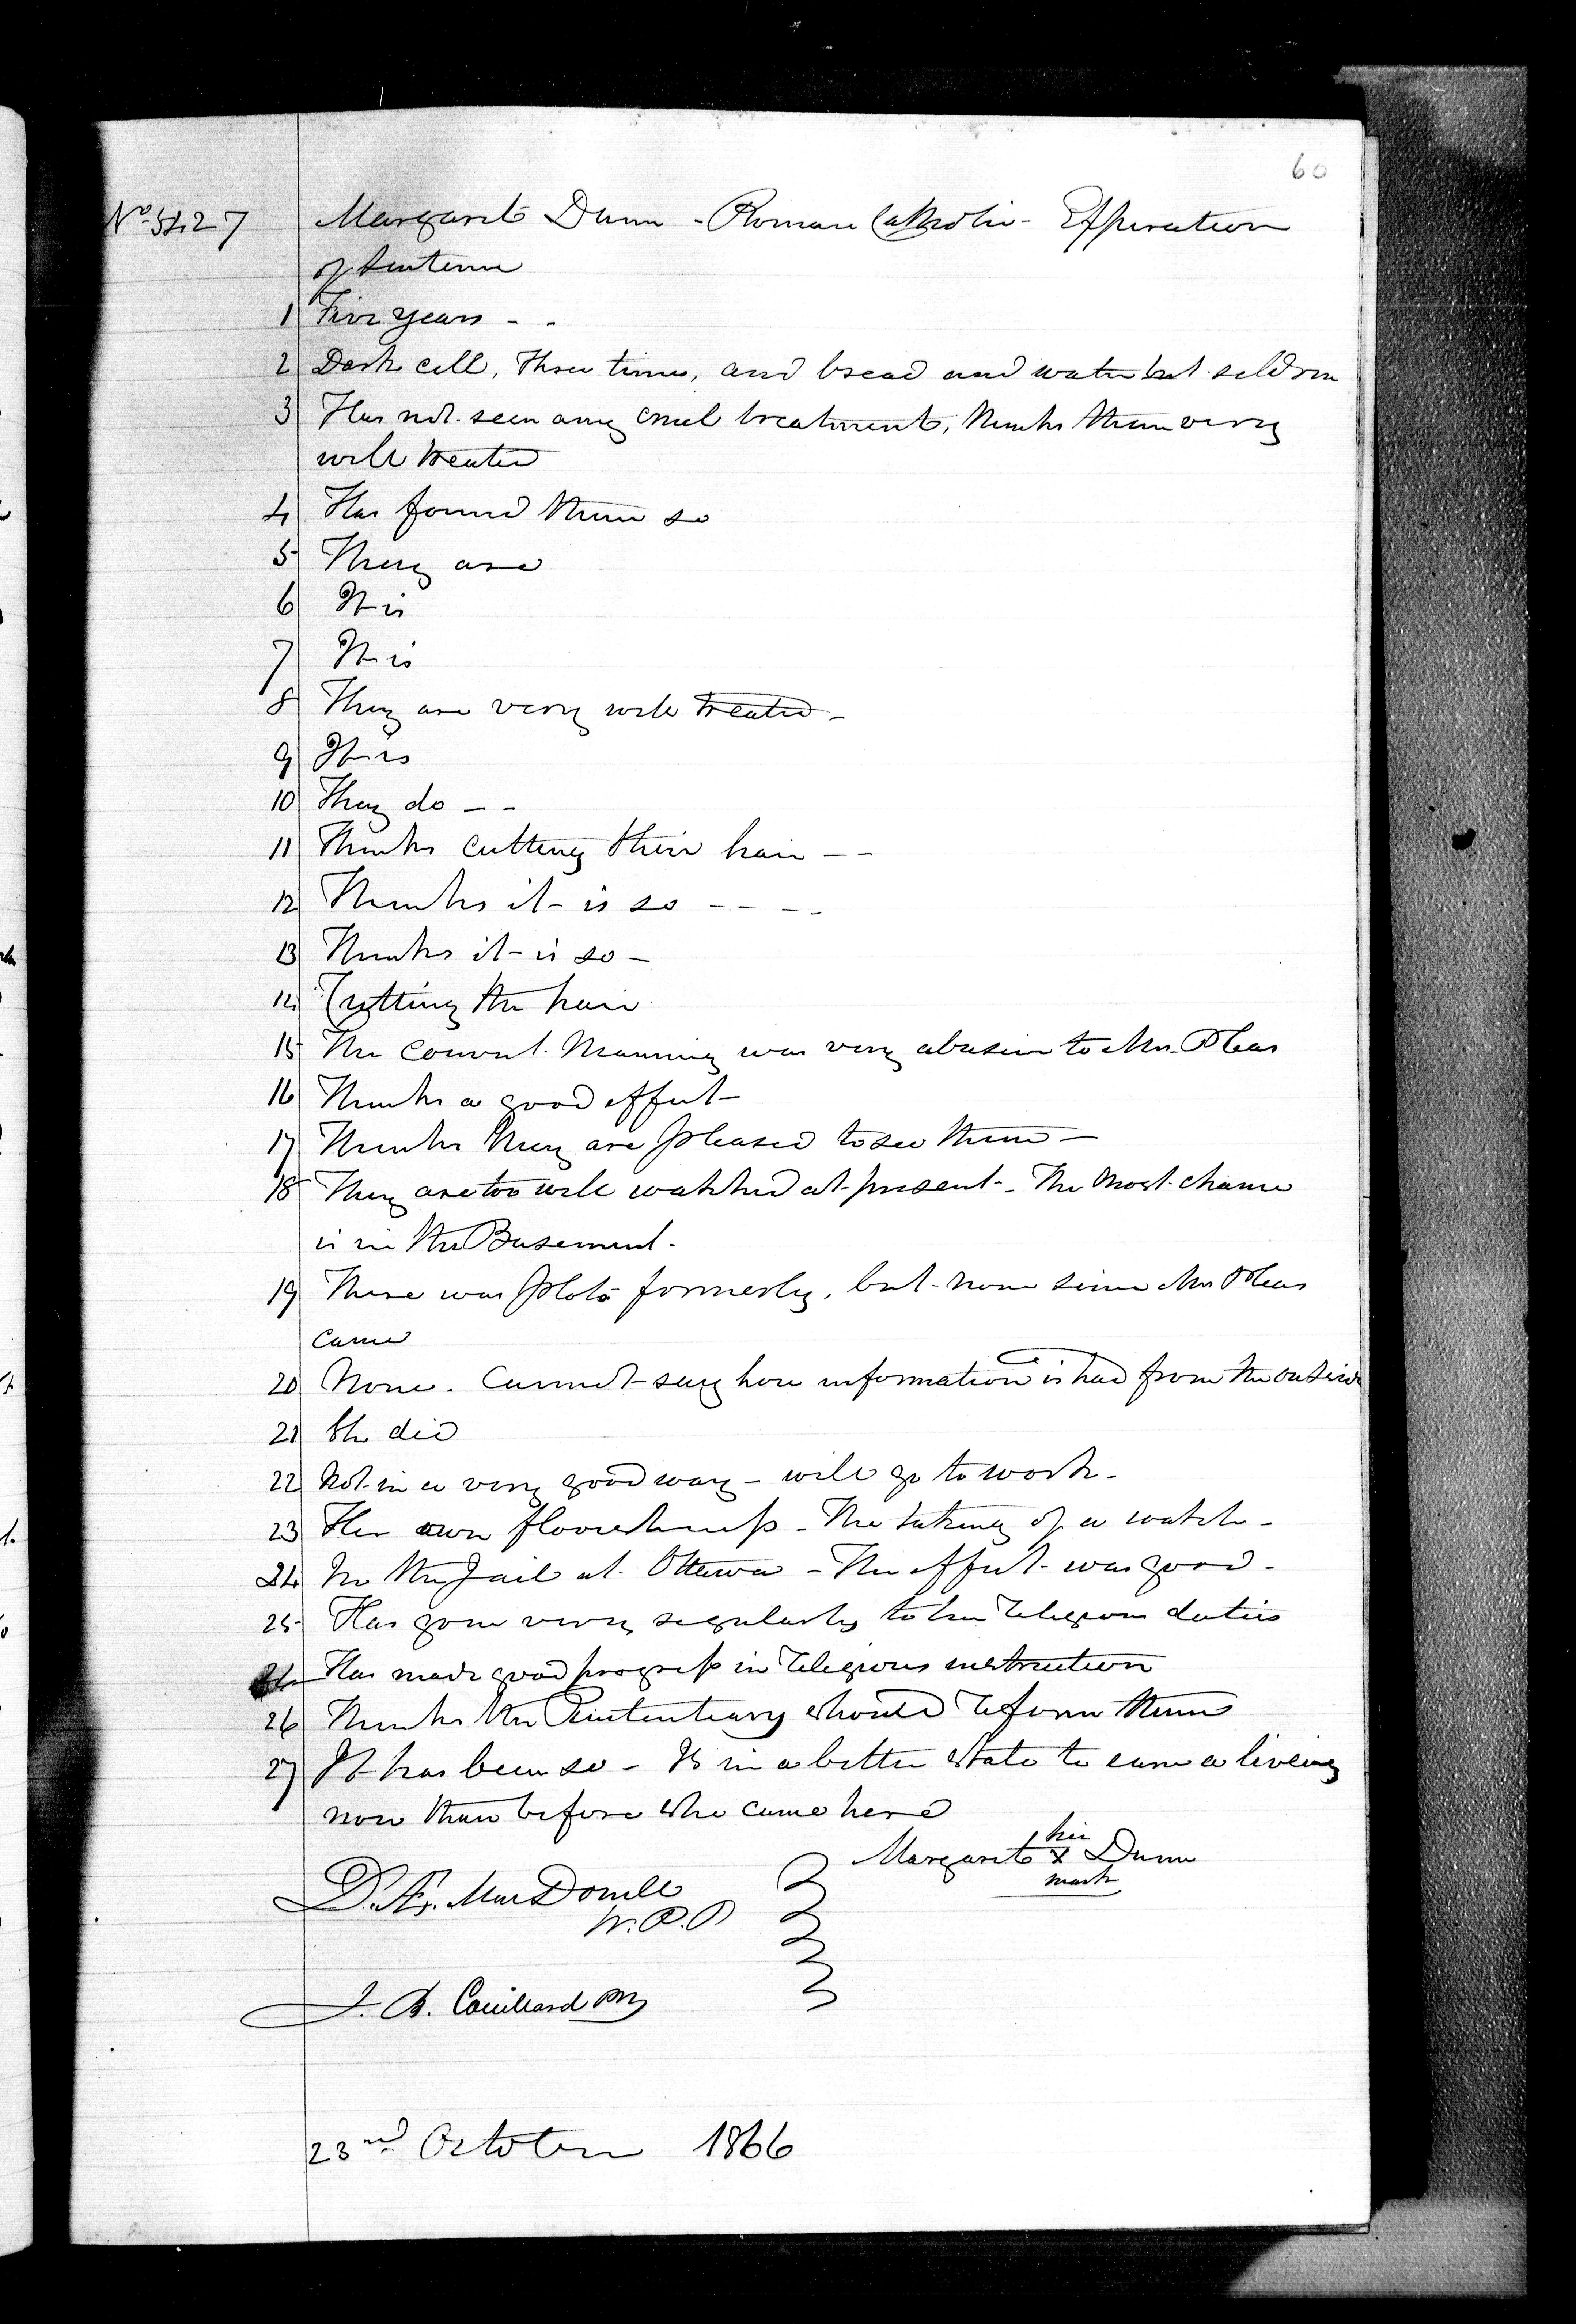 60
No. 5427 Margaret Dunn - Roman Catholic - Expiration
of Sentence
1 Five years - -
2 Dark cell, Three times, and bread and water but seldom
3 Has not seen any cruel treatment, thinks them very
well treated
4 Has found them so
5 They are
6 It is
7 It is
8 They are very well treated -
9 It is
10 They do - -
11 Thinks cutting their hair - -
12 Thinks it is so - - - -
13 Thinks it is so -
14 Cutting the hair
15 The convict Manning was very abusive to Mrs.
16 Thinks a good effect
17 Thinks they are pleased to see them -
18 They are too well watched at present - The most chance
is in the Basement.
19 There was plots formerly, but none since Mrs
came
20 None. Cannot say how information is had from the outside
21 She did
22 Not in a very good way - will go to work -
23 Her own - The taking of a watch -
24 In the Jail at Ottawa - The effect was good -
25 Has gone very regularly to her religious duties
Has made good progress in religious instruction
26 Thinks the Penitentiary should reform them
27 It has been so - Is in a better state to earn a liveing
now than before she came here
her
Margaret x Dunn
mark
D. Æ. MacDonell
W. P. P
J. B. Couillard
23rd October 1866